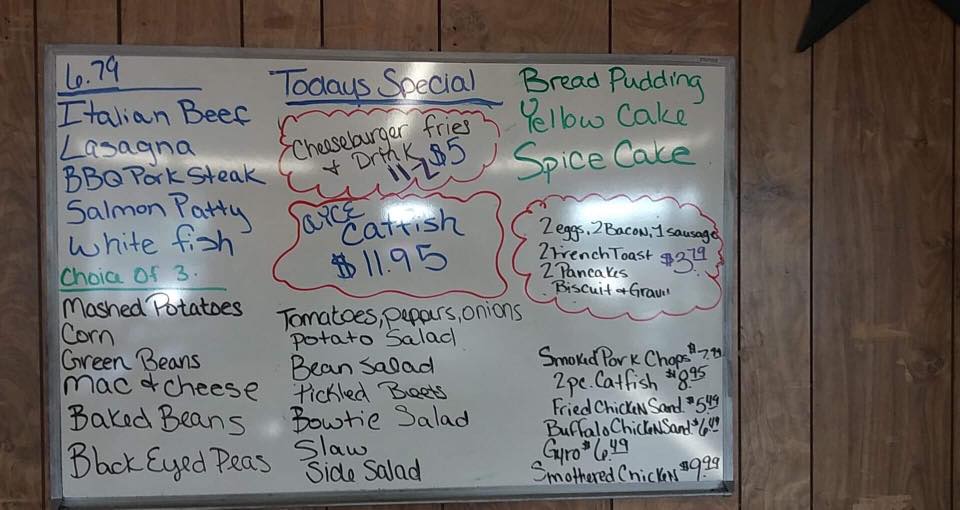 6.79
Italian Beef
Lasagna
BBQ Pork Steak
Salmon Patty
White fish
Choice Of 3.
Mashed Potatoes
Corn
Green Beans
Mac & cheese
Baked Beans
Black Eyed Peas
Todays Special
Cheeseburger fries
& Drink $5
11-2
AYCE
Catfish
$11.95
Tomatoes, peppers, onions
potato Salad
Bean Salad
Pickled Beets
Bowtie Salad
Slaw
Side Salad
Bread Pudding
Yellow Cake
Spice Cake
2 eggs, 2 Bacon, 1 sausage
2 French Toast $3.79
2 Pancakes
Biscuit & Gravy
Smoked Pork Chops $7.99
2pc. Catfish $8.95
Fried Chicken Sand. $5.49
Buffalo Chicken Sand $6.49
Gyro $6.49
Smothered Chicken $9.99